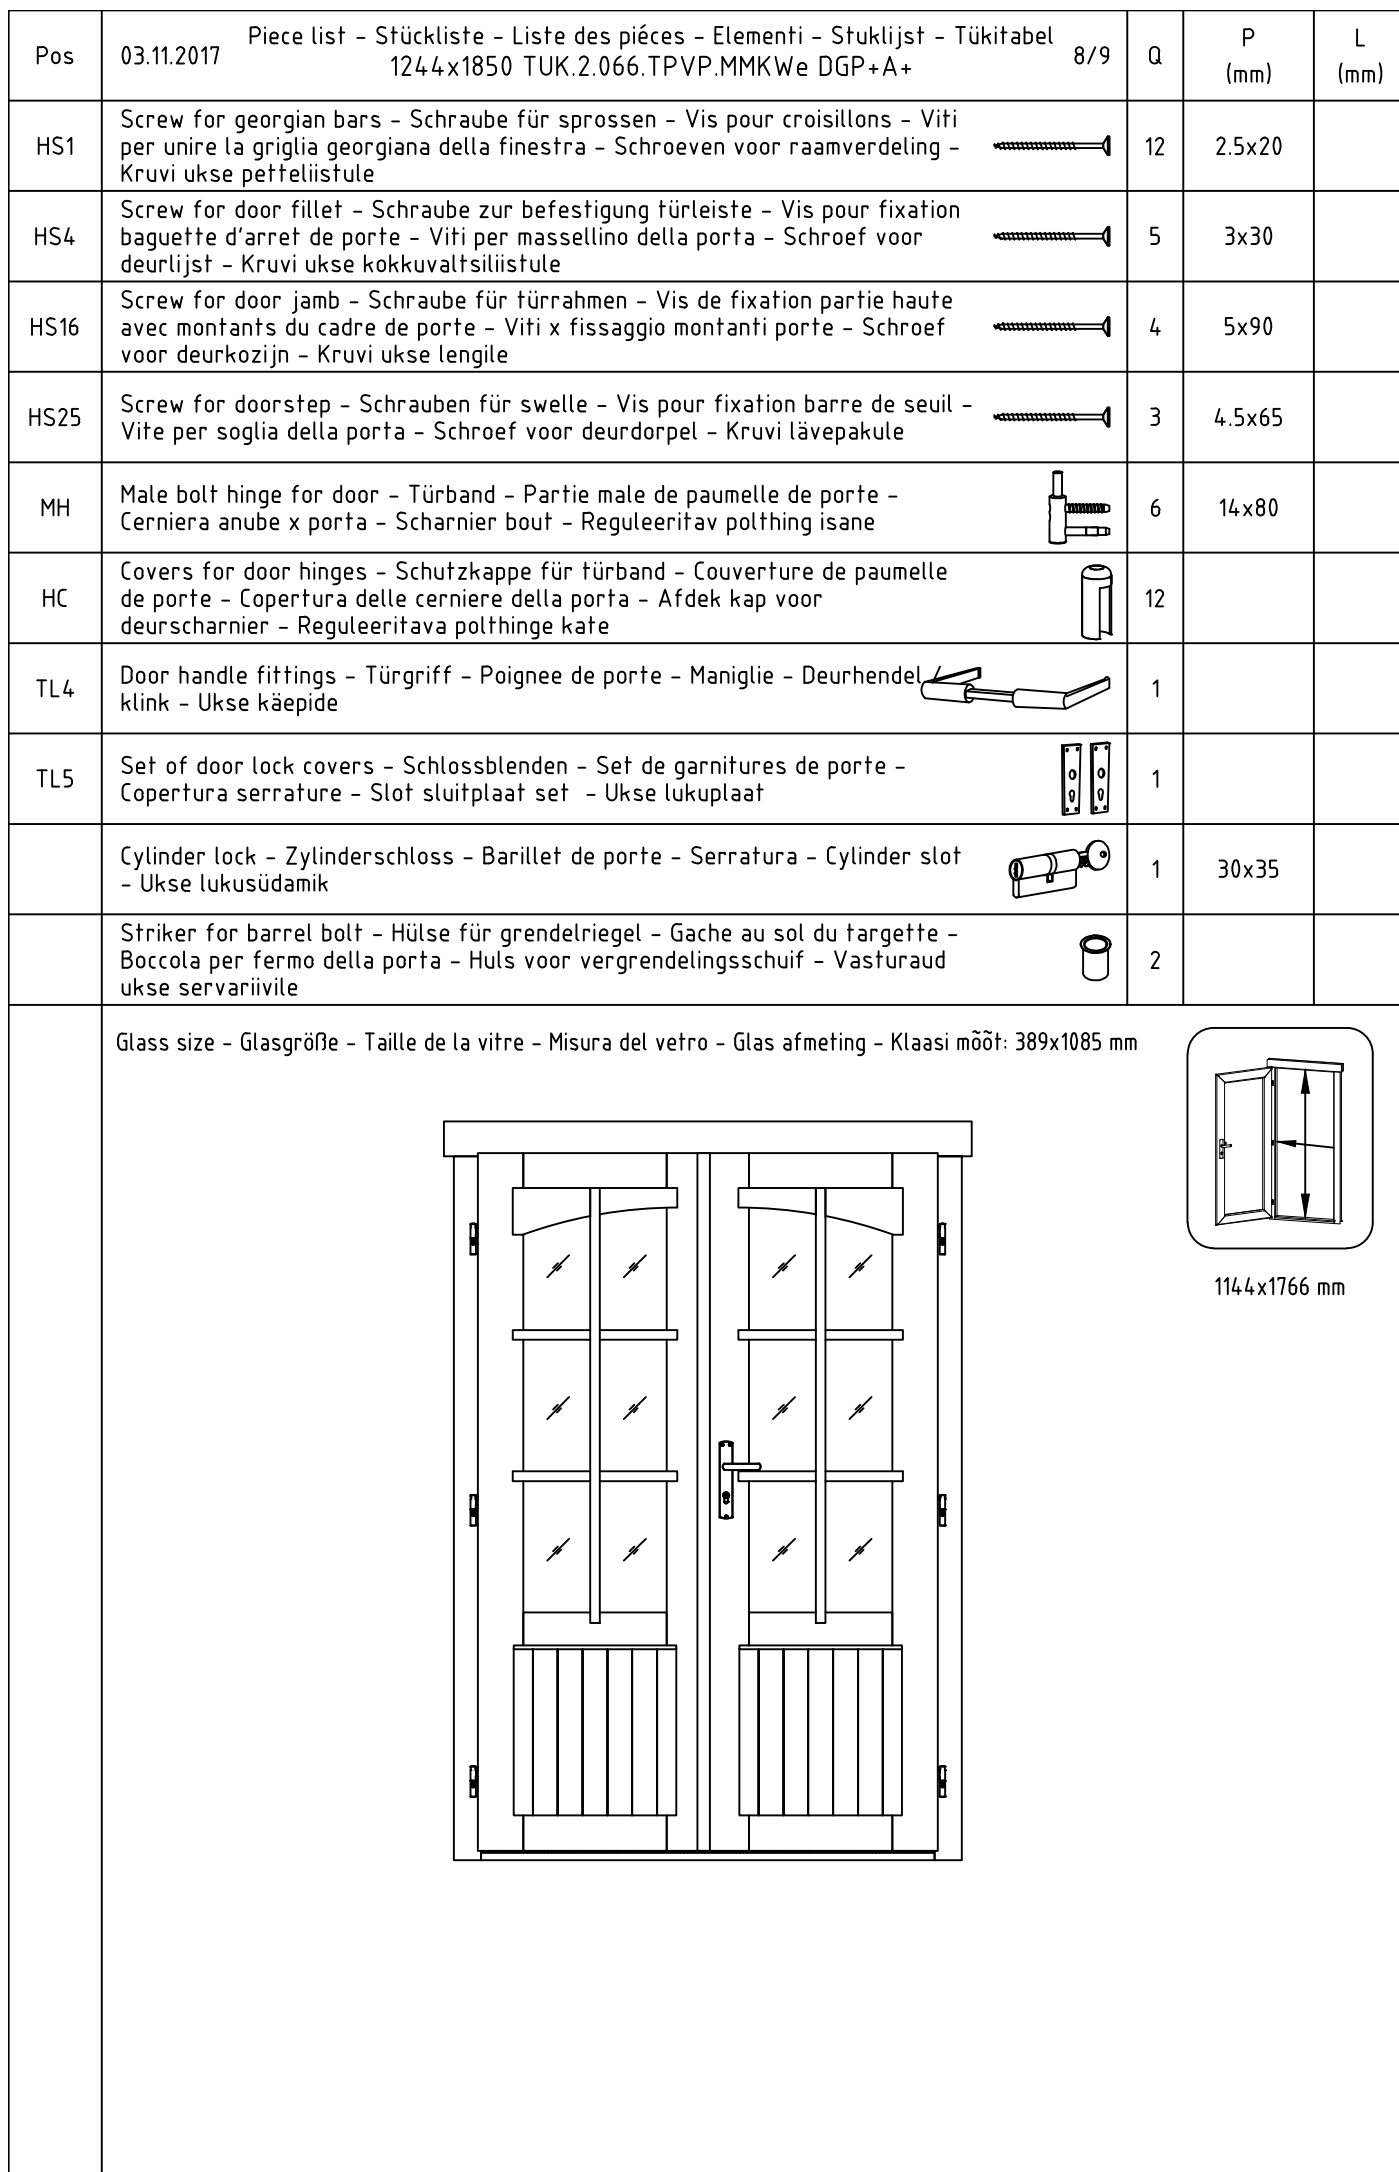 Pos
03.11.2017
Piece list - Stückliste - Liste des piéces - Elementi - Stuklijst - Tükitabel
1244x1850 TUK.2.066.TPVP.MMKWe DGP+A+
8/9
Q
P
(mm)
L
(mm)
HS1
Screw for georgian bars - Schraube für sprossen - Vis pour croisillons - Viti
per unire la griglia georgiana della finestra - Schroeven voor raamverdeling -
Kruvi ukse petteliistule
12
2.5x20
HS4
Screw for door fillet - Schraube zur befestigung türleiste - Vis pour fixation
baguette d'arret de porte - Viti per massellino della porta - Schroef voor
deurlijst - Kruvi ukse kokkuvaltsiliistule
5
3x30
HS16
Screw for door jamb - Schraube für türrahmen - Vis de fixation partie haute
avec montants du cadre de porte - Viti x fissaggio montanti porte - Schroef
voor deurkozijn - Kruvi ukse lengile
4
5x90
HS25
Screw for doorstep - Schrauben für swelle - Vis pour fixation barre de seuil -
Vite per soglia della porta - Schroef voor deurdorpel - Kruvi lävepakule
3
4.5x65
MH
Male bolt hinge for door - Türband - Partie male de paumelle de porte -
Cerniera anube x porta - Scharnier bout - Reguleeritav polthing isane
6
14x80
HC
Covers for door hinges - Schutzkappe für türband - Couverture de paumelle
de porte - Copertura delle cerniere della porta - Afdek kap voor
deurscharnier - Reguleeritava polthinge kate
12
TL4
Door handle fittings - Türgriff - Poignee de porte - Maniglie - Deurhendel /
klink - Ukse käepide
1
TL5
Set of door lock covers - Schlossblenden - Set de garnitures de porte -
Copertura serrature - Slot sluitplaat set - Ukse lukuplaat
1
Cylinder lock - Zylinderschloss - Barillet de porte - Serratura - Cylinder slot
- Ukse lukusüdamik
1
30x35
Striker for barrel bolt - Hülse für grendelriegel - Gache au sol du targette -
Boccola per fermo della porta - Huls voor vergrendelingsschuif - Vasturaud
ukse servariivile
2
Glass size - Glasgröße - Taille de la vitre - Misura del vetro - Glas afmeting - Klaasi mõõt: 389x1085 mm
1144x1766 mm